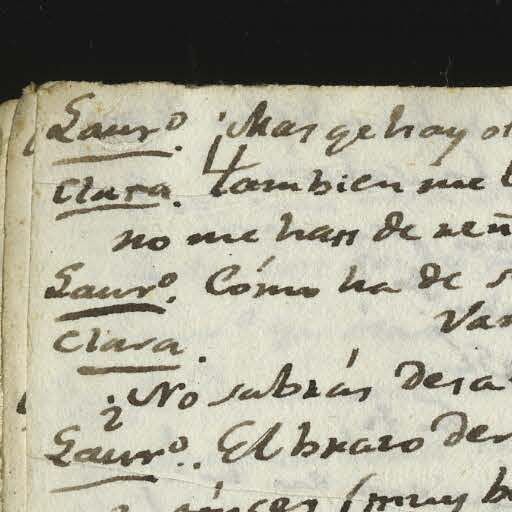 Laur.º ¡Mas qe hay ot
Clara. También me l
no me has de reñ
Laur.º. Cómo ha de s
Van
Clara.
¿No sabrás desa
Laur.º. El brazo der
(muy b